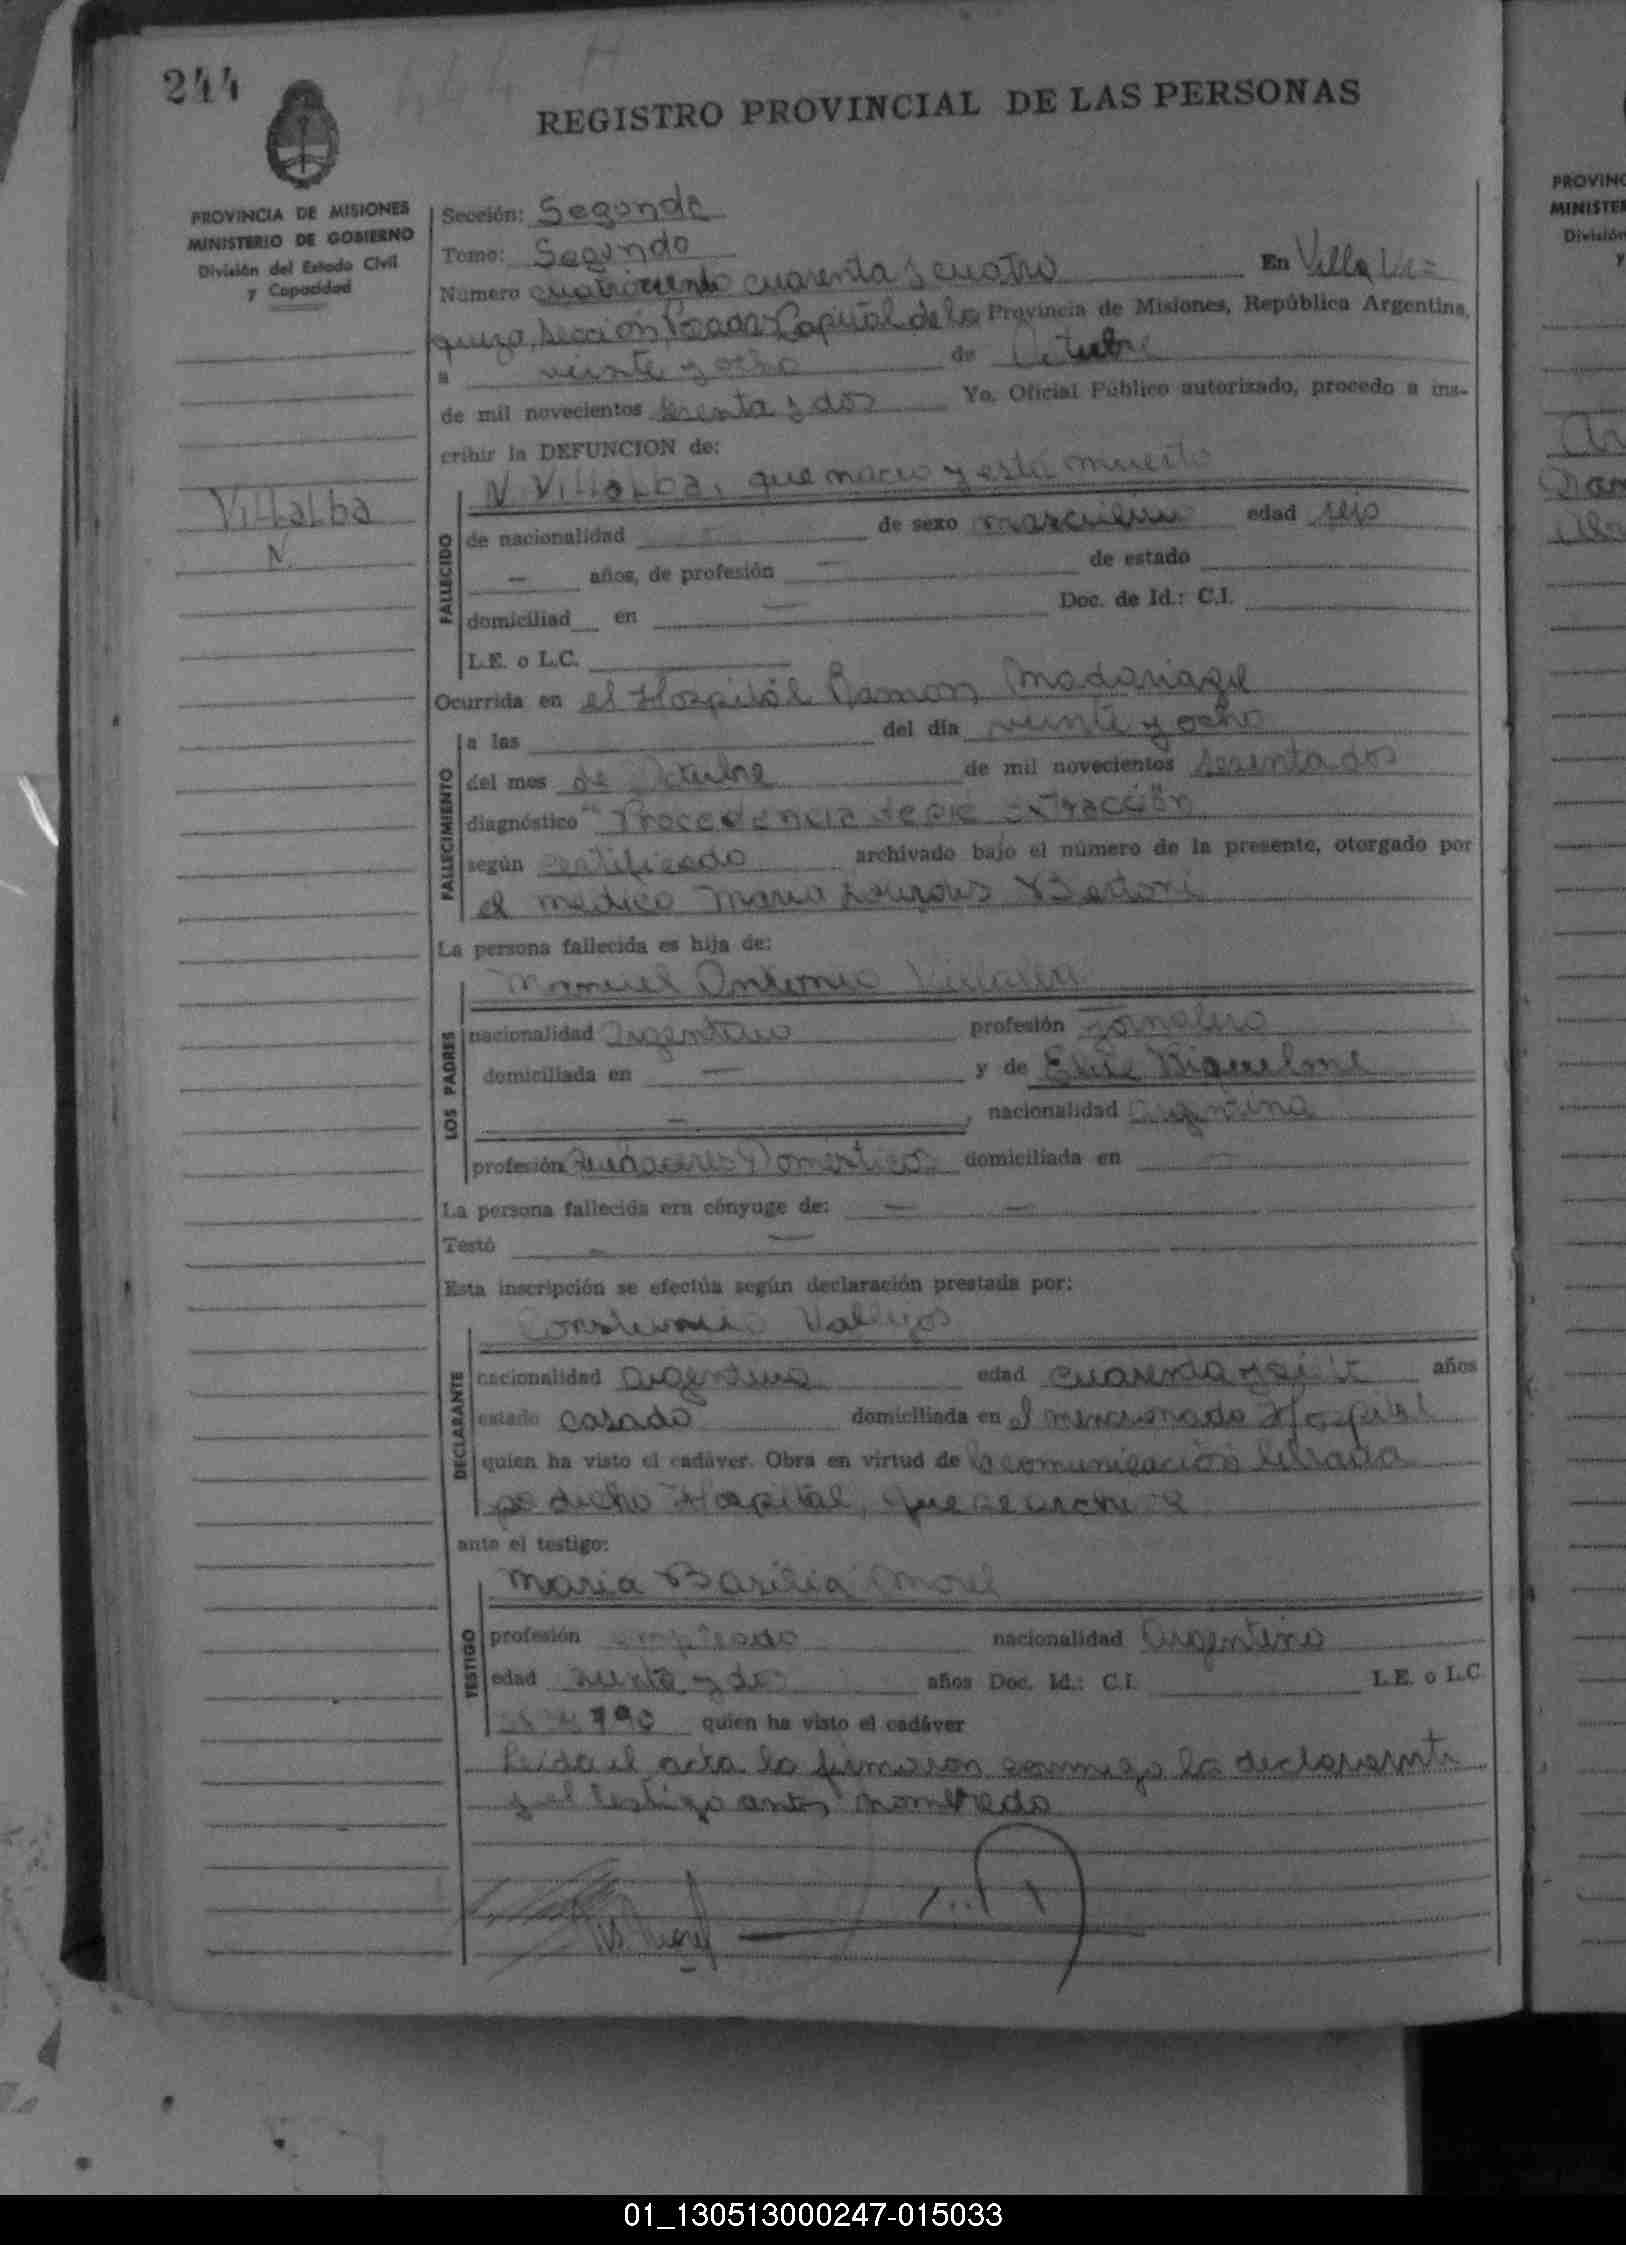 244
REGISTRO PROVINCIAL DE LAS PERSONAS
PROVINCIA DE MISIONES
MINISTERIO DE GOBIERNO
División del Estado Civil
y Capacidad
Sección: Segunda
Tomo: Segundo
Número cuatrociento cuarenta y cuatro En Villa
Sección, Posadas Capital de la Provincia de Misiones, República Argentina,
a veinte y ocho de Octubre
de mil novecientos sesenta y dos Yo, Oficial Público autorizado, procedo a ins-
cribir la DEFUNCION de:
N. Villalba, que nacio y está muerto
Villalba
N.
FALLECIDO
de nacionalidad de sexo masculino edad
— años, de profesión — de estado
domiciliad en — Doc. de Id.: C.I.
L.E. o L.C.
Ocurrida en el Hospital Ramon Madariaga
FALLECIMIENTO
a las del día veinte y ocho
del mes de Octubre de mil novecientos sesenta dos
diagnóstico "Procedencia de pie extracción
según certificado archivado bajo el número de la presente, otorgado por
el medico Maria Bertoni
La persona fallecida es hija de:
Manuel Antonio Villalba
LOS PADRES
nacionalidad argentino profesión Jornalero
domiciliada en — y de Riquelme
— , nacionalidad argentina
profesión Quehaceres Domesticos domiciliada en —
La persona fallecida era cónyuge de: — —
Testó — —
Esta inscripción se efectúa según declaración prestada por:
Vallejos
DECLARANTE
nacionalidad argentina edad cuarenta y años
estado casado domiciliada en el mencionado Hospital
quien ha visto el cadáver. Obra en virtud de la comunicación librada
po dicho Hospital, que se archiva
ante el testigo:
Maria Basilia Morel
TESTIGO
profesión empleado nacionalidad Argentina
edad y dos años Doc. Id.: C.I. L.E. o L.C.
790 quien ha visto el cadáver
Leida el acta la firmaron conmigo la declarante
y el testigo antes nombrado
01_130513000247-015033
PROVINC
MINISTER
División
y